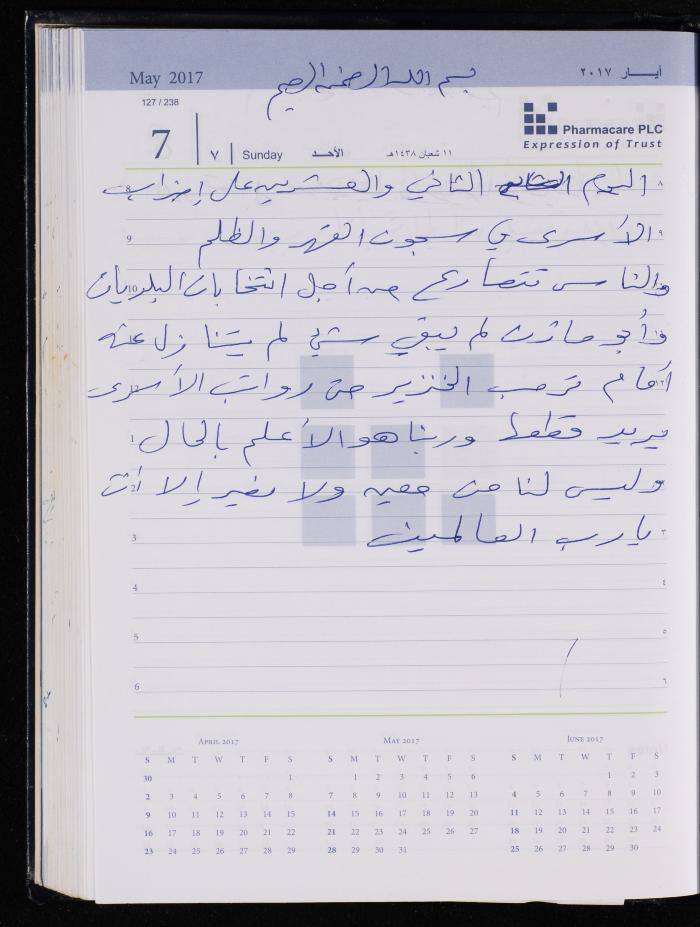 بسم الله الرحمن الرحيم
May 2017
أيـــار ٢٠١٧
127 / 238
7
٧
Sunday
الأحـــد
١١ شعبان ١٤٣٨هـ
Pharmacare PLC
Expression of Trust
اليوم الثاني والعشرين على إضراب
الأسرى في سجون القهر والظلم
والناس تتصارع من أجل انتخابات البلديات
وأبو مازن لم يبقى شيء لم يتنازل عنه
أمام ترمب الخنزير حتى رواتب الأسرى
يريد قطعها وربنا هو الأعلم بالحال
وليس لنا من معين ولا نصير إلا أنت
يا رب العالمين
8 ٨
9 ٩
10
1
2
3 ٣
4 ٤
5 ٥
6 ٦
April 2017
S M T W T F S
30 1
2 3 4 5 6 7 8
9 10 11 12 13 14 15
16 17 18 19 20 21 22
23 24 25 26 27 28 29
May 2017
S M T W T F S
1 2 3 4 5 6
7 8 9 10 11 12 13
14 15 16 17 18 19 20
21 22 23 24 25 26 27
28 29 30 31
June 2017
S M T W T F S
1 2 3
4 5 6 7 8 9 10
11 12 13 14 15 16 17
18 19 20 21 22 23 24
25 26 27 28 29 30